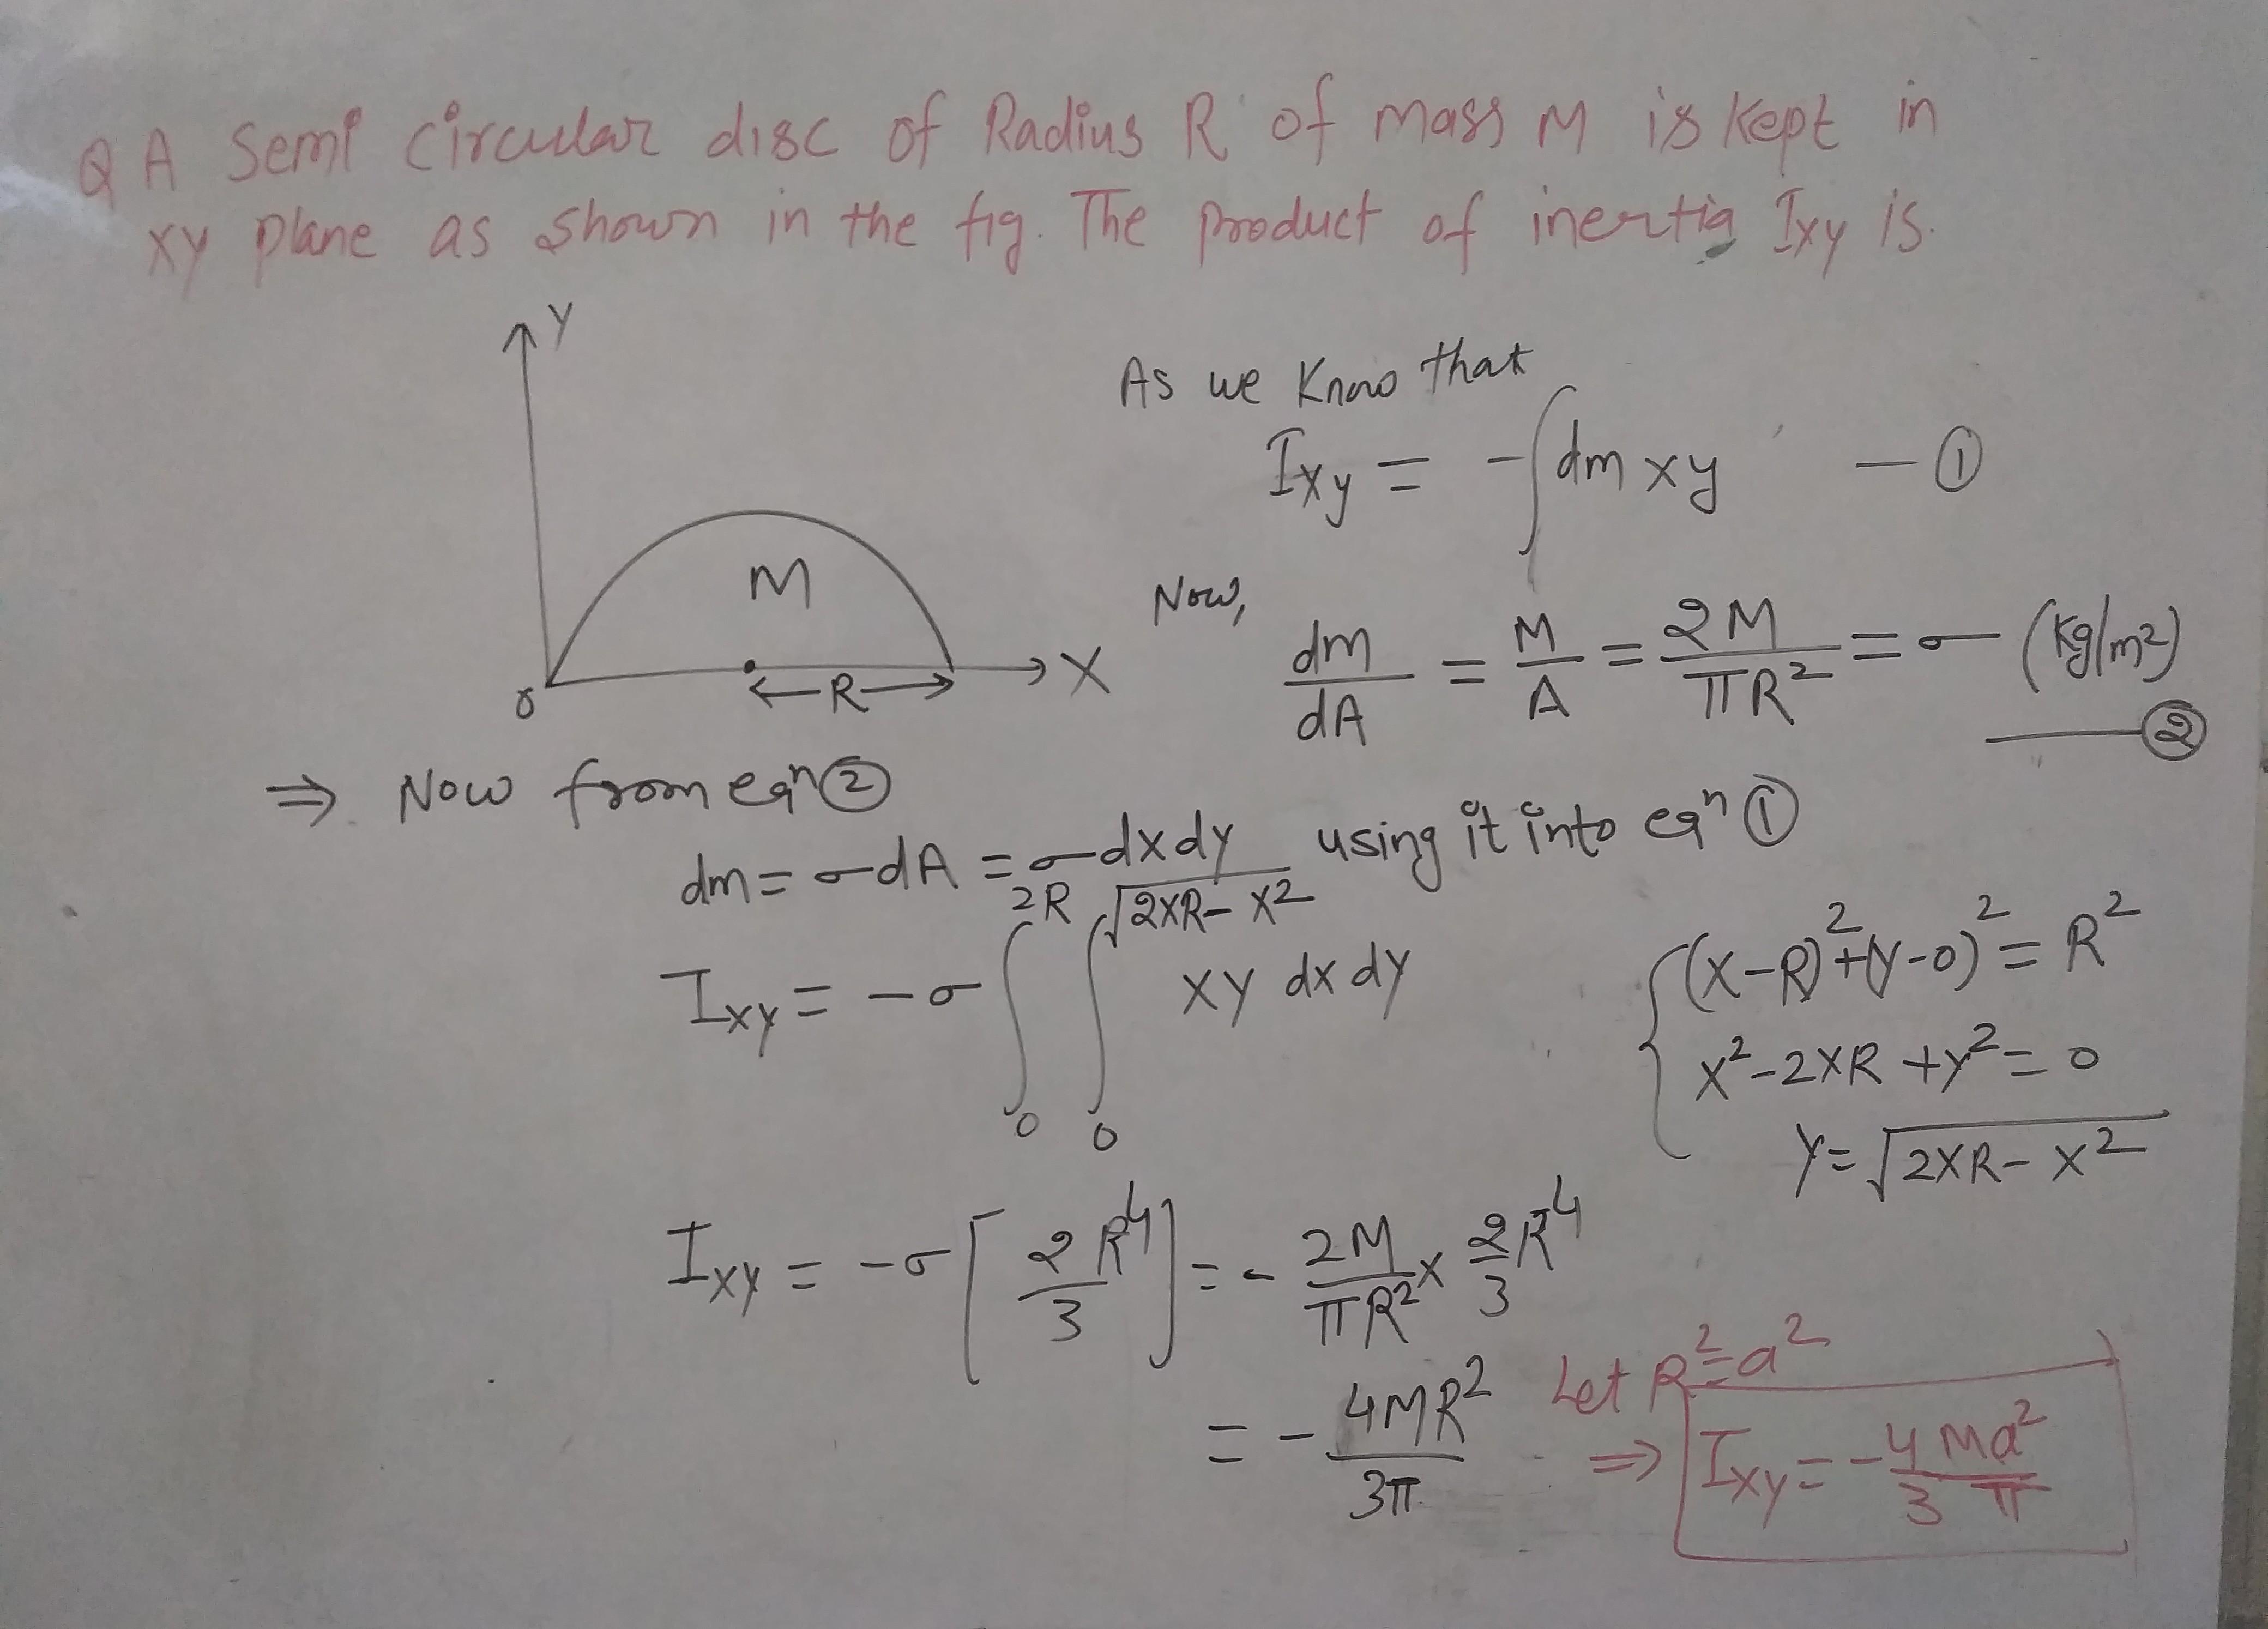 Q A Semi circular disc of Radius R of mass M is kept in
XY plane as shown in the fig. The product of inertia Ixy is.
Y
M
X
0
←R→
As we know that
Ixy = -∫dm xy — ①
Now,
dm/dA = M/A = 2M/πR² = σ (Kg/m²)
— ②
⇒ Now from eqⁿ ②
dm = σdA = σdxdy using it into eqⁿ ①
Ixy = -σ ∫₀^2R ∫₀^√(2XR-X²) XY dx dy
(X-R)²+(Y-0)² = R²
X²-2XR+Y² = 0
Y = √(2XR-X²)
Ixy = -σ[2R⁴/3] = - 2M/πR² × 2/3 R⁴
= - 4MR²/3π
Let R²=a²
⇒ Ixy = -4Ma²/3π